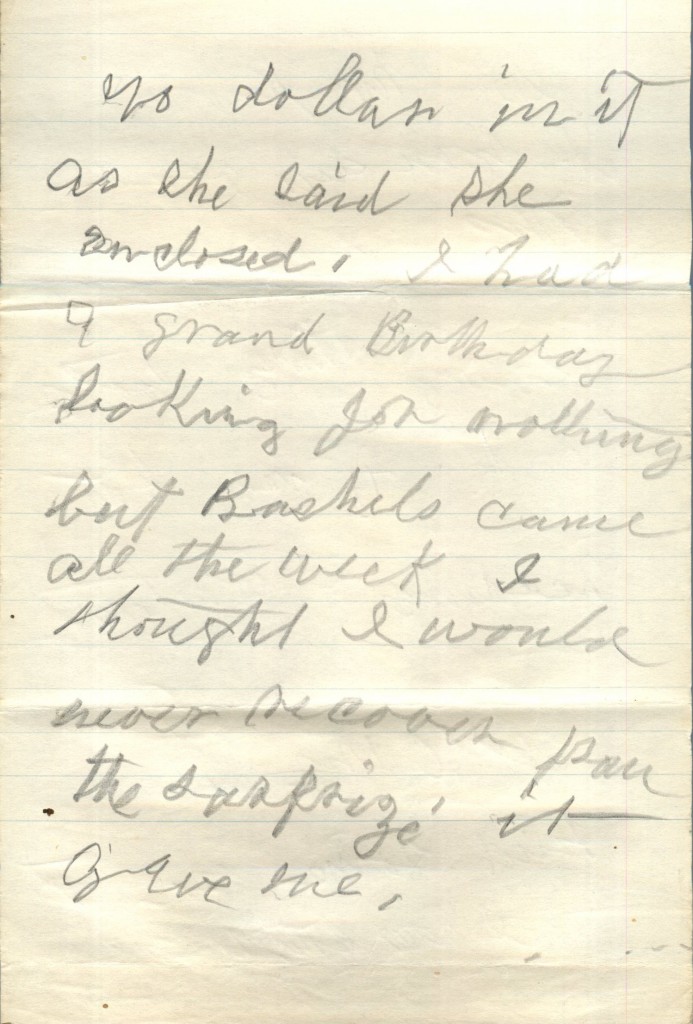 no dollar in it
as she said she
enclosed. I had
a grand Birthday
looking for nothing
but Baskets came
all the week I
thought I would
never recover
the surprize it
gave me,